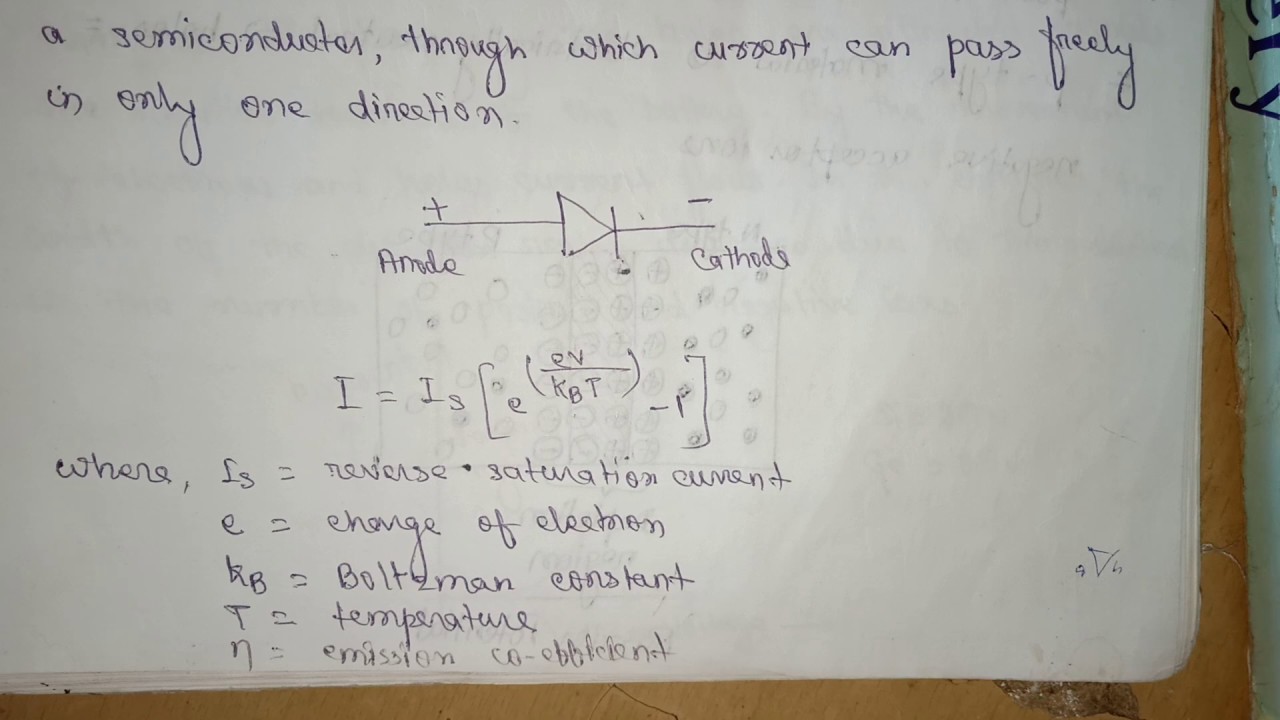 a semiconductor, through which current can pass freely
in only one direction.
+ −
Anode Cathode
I = I_s [e^(eV/K_BT) −1]
where, I_s = reverse saturation current
e = charge of electron
K_B = Boltzman constant
T = temperature
η = emission co-efficient